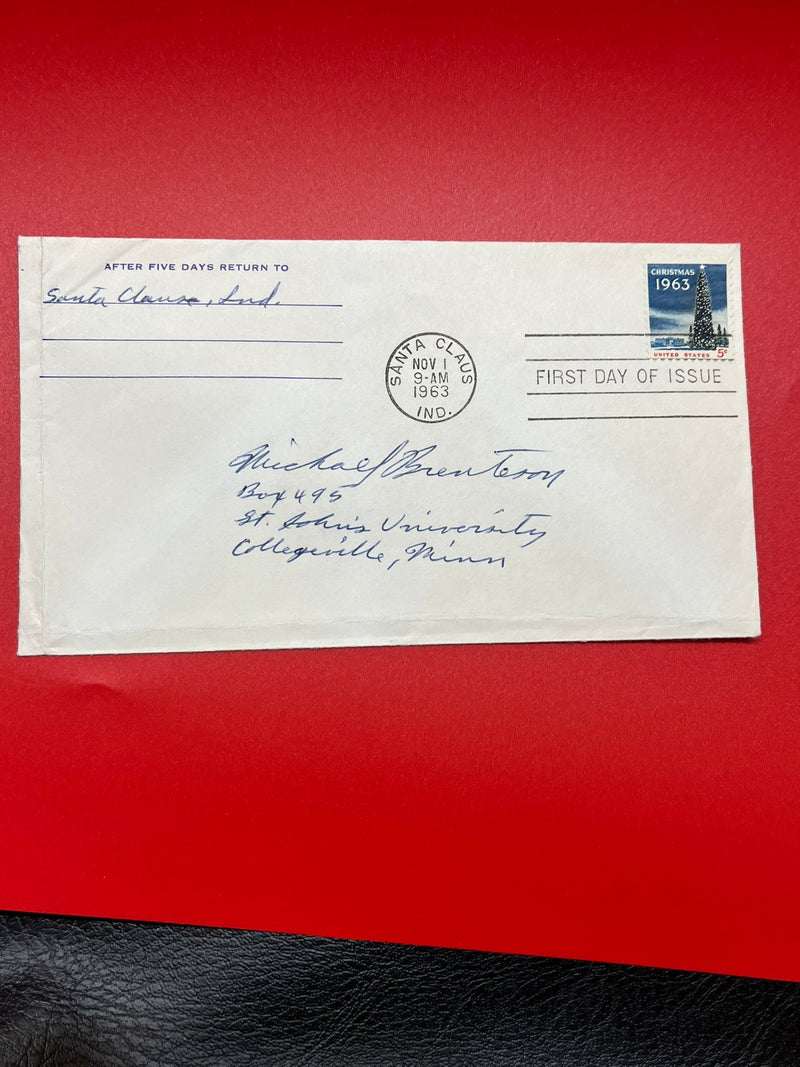 AFTER FIVE DAYS RETURN TO
Santa Clause, Ind.
CHRISTMAS
1963
UNITED STATES 5¢
SANTA CLAUS
NOV 1
9-AM
1963
IND.
FIRST DAY OF ISSUE
Michael Brenteson
Box 495
St. John's University
Collegeville, Minn